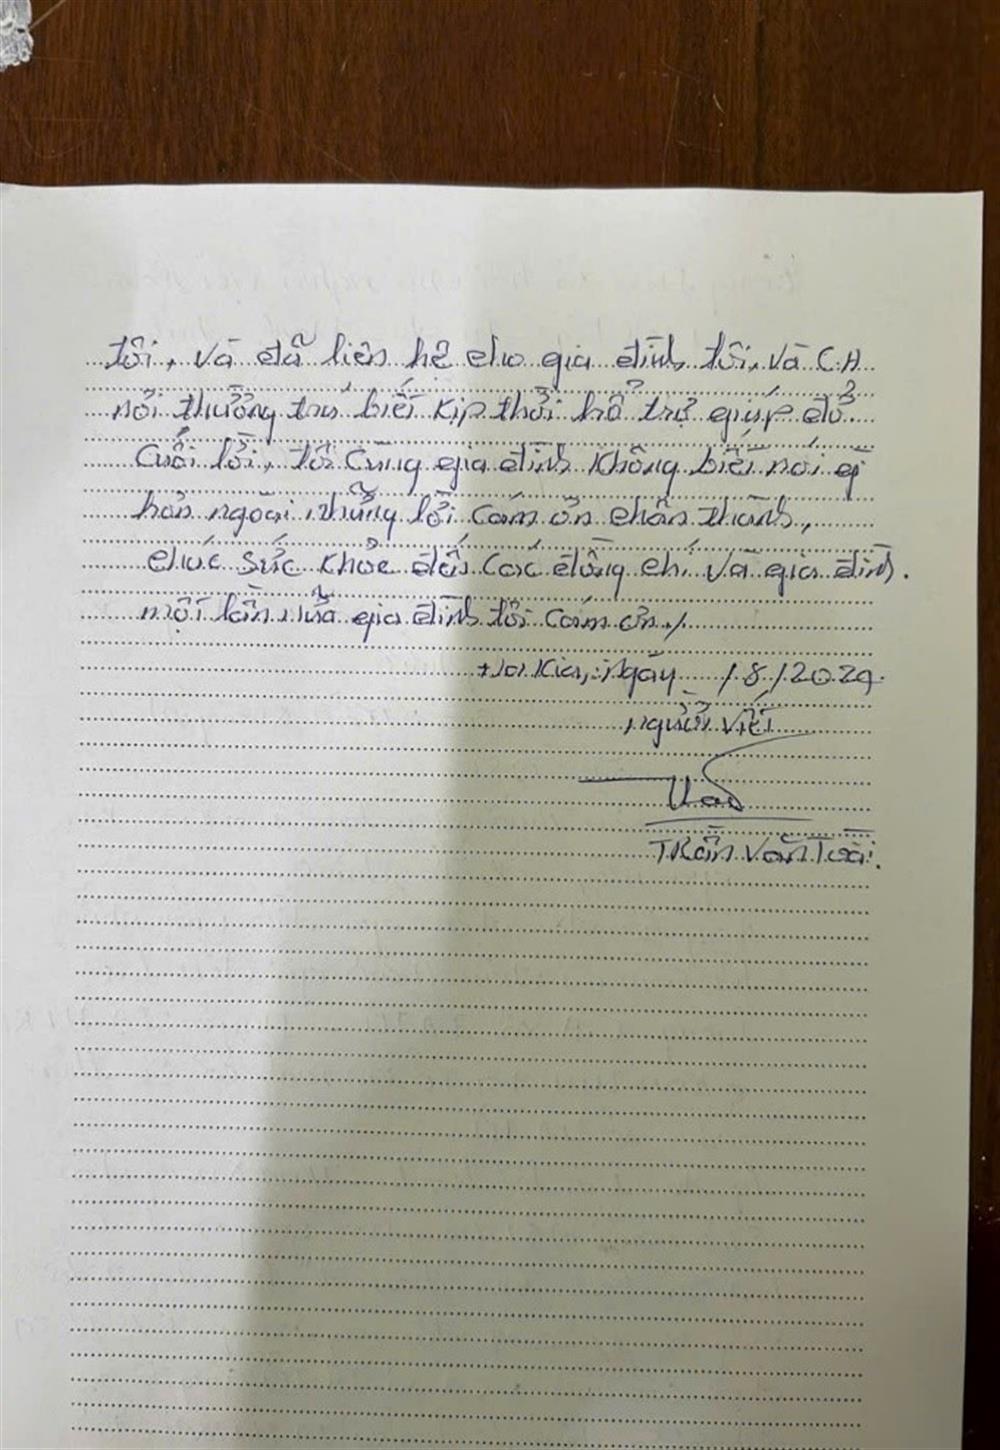 tôi, và đã liên hệ cho gia đình tôi, và C.A
nơi thường trú biết kịp thời hỗ trợ giúp đỡ
Cuối lời, tôi cùng gia đình không biết nói gì
hơn ngoài những lời cám ơn chân thành,
chúc sức khỏe đến các đồng chí và gia đình.
một lần nữa gia đình tôi cám ơn./
Ngày /8/2024
người viết
Trần Văn